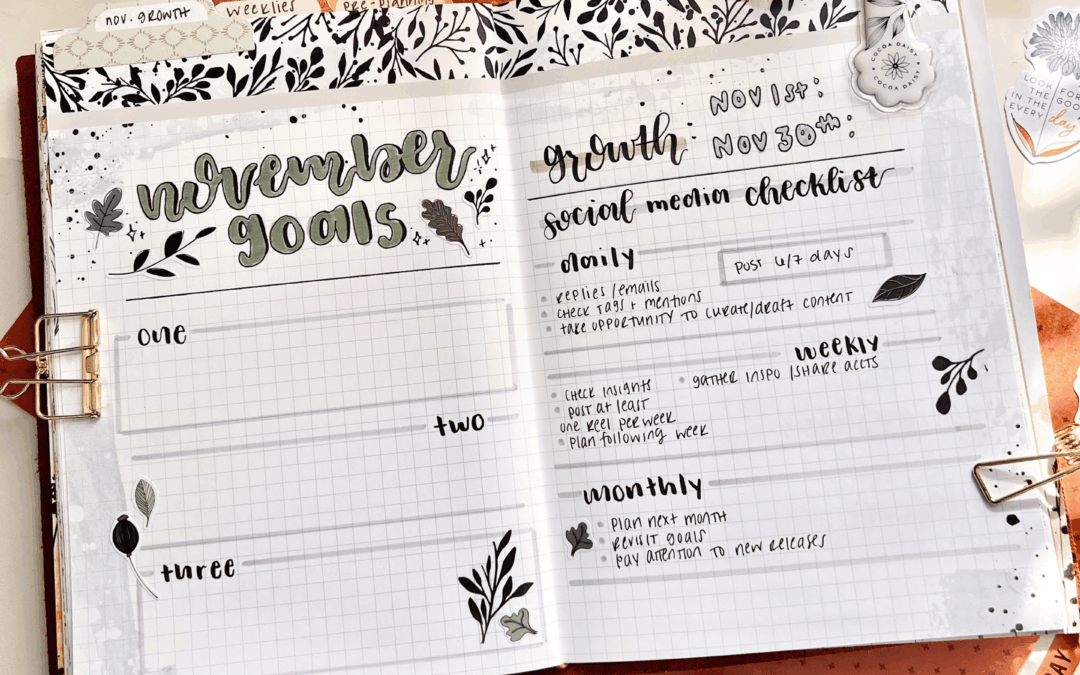 nov. growth
weeklies
pre-planning
november
goals
one
two
three
growth:
Nov 1st:
Nov 30th:
social media checklist
daily
post 6/7 days
replies/emails
check tags + mentions
take opportunity to curate/draft content
weekly
check insights
gather inspo/share accts
post at least
one reel per week
plan following week
monthly
plan next month
revisit goals
pay attention to new releases
COCOA DAISY
COCOA DAISY
LOOK FOR
THE GOOD
IN THE
EVERY day
DAY